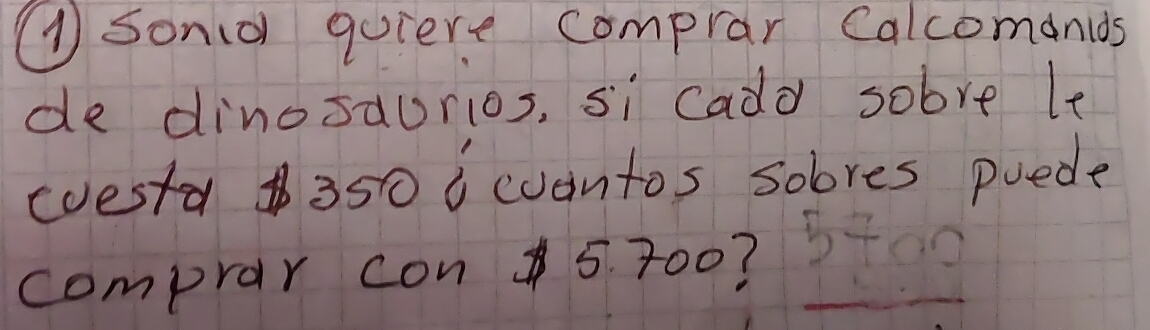 ① Sonia quiere comprar calcomanias
de dinosaurios, si cada sobre le
cuesta $350 ¿cuantos sobres puede
comprar con $5.700? 5700